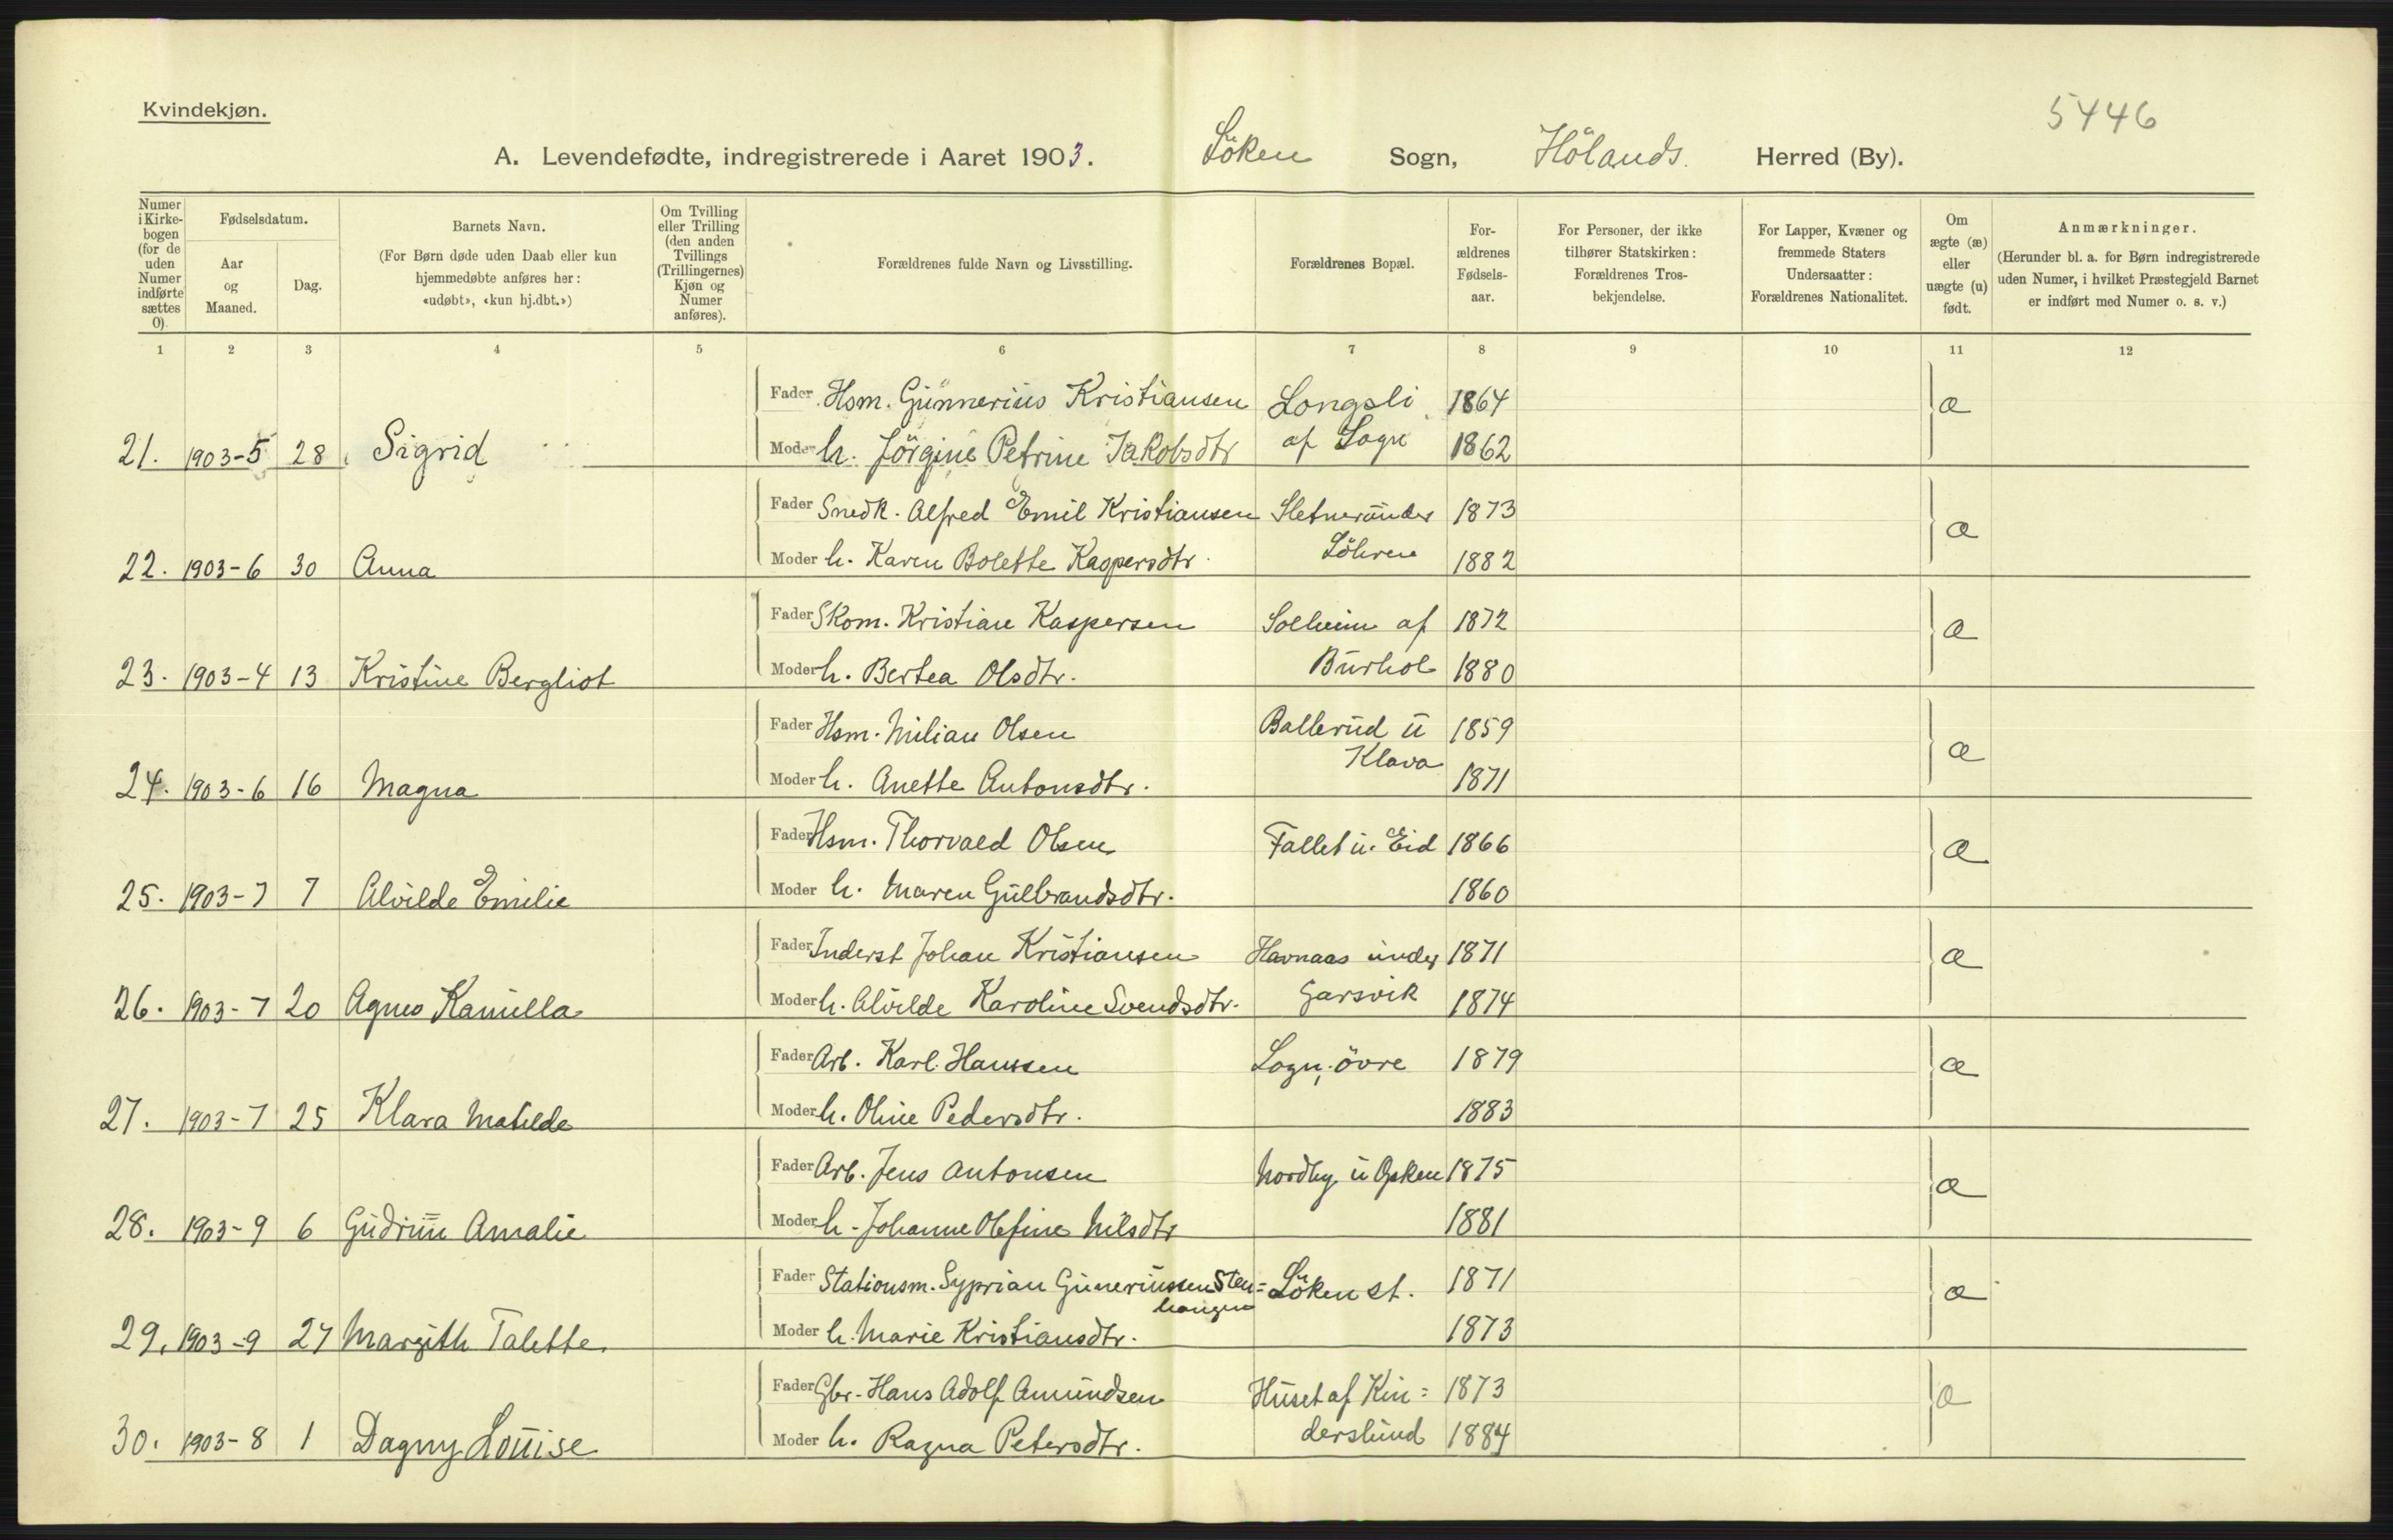 Kvindekjøn.
5446
A. Levendefødte, indregistrerede i Aaret 1903. Löken Sogn, Hölands. Herred (By).
Numer i Kirkebogen (for de uden Numer indførte sættes 0).
Fødselsdatum.
Aar og Maaned.
Dag.
Barnets Navn.
(For Børn døde uden Daab eller kun hjemmedøbte anføres her: «udøbt», «kun hj.dbt.»)
Om Tvilling eller Trilling (den anden Tvillings (Trillingernes) Kjøn og Numer anføres).
Forældrenes fulde Navn og Livsstilling.
Forældrenes Bopæl.
Forældrenes Fødselsaar.
For Personer, der ikke tilhører Statskirken: Forældrenes Trosbekjendelse.
For Lapper, Kvæner og fremmede Staters Undersaatter: Forældrenes Nationalitet.
Om ægte (æ) eller uægte (u) født.
Anmærkninger.
(Herunder bl. a. for Børn indregistrerede uden Numer, i hvilket Præstegjeld Barnet er indført med Numer o. s. v.)
1 2 3 4 5 6 7 8 9 10 11 12
Fader Hsm. Gunnerius Kristiansen Longsli 1864 æ
21. 1903-5 28 Sigrid Moder h. Jörgine Petrine Jakobsdtr af Sogn 1862
Fader Snedk. Alfred Emil Kristiansen Sletner under 1873 æ
22. 1903-6 30 Anna Moder h. Karen Bolette Kaspersdtr. Löhren 1882
Fader Skom. Kristian Kaspersen Solheim af 1872 æ
23. 1903-4 13 Kristine Bergliot Moder h. Bertea Olsdtr. Burhol 1880
Fader Hsm. Milian Olsen Ballerud u 1859 æ
24. 1903-6 16 Magna Moder h. Anette Antonsdtr. Klava 1871
Fader Hsm. Thorvald Olsen Fallet u. Eid 1866 æ
25. 1903-7 7 Alvilde Emilie Moder h. Maren Gulbrandsdtr. 1860
Fader Inderst Johan Kristiansen Havnaas under 1871 æ
26. 1903-7 20 Agnes Kamilla Moder h. Alvilde Karoline Svendsdtr. Garsvik 1874
Fader Arb. Karl Hansen Sogn, övre 1879 æ
27. 1903-7 25 Klara Matilde Moder h. Oline Pedersdtr. 1883
Fader Arb. Jens Antonsen Nordby u Opken 1875 æ
28. 1903-9 6 Gudrun Amalie Moder h. Johanne Olefine Nilsdtr 1881
Fader Stationsm. Syprian Guneriussen Sten= Löken st. 1871 æ
haugen
29. 1903-9 27 Margith Talette. Moder h. Marie Kristiansdtr. 1873
Fader Gbr. Hans Adolf Amundsen Huset af Kin= 1873 æ
30. 1903-8 1 Dagny Louise Moder h. Ragna Petersdtr. derslund 1884